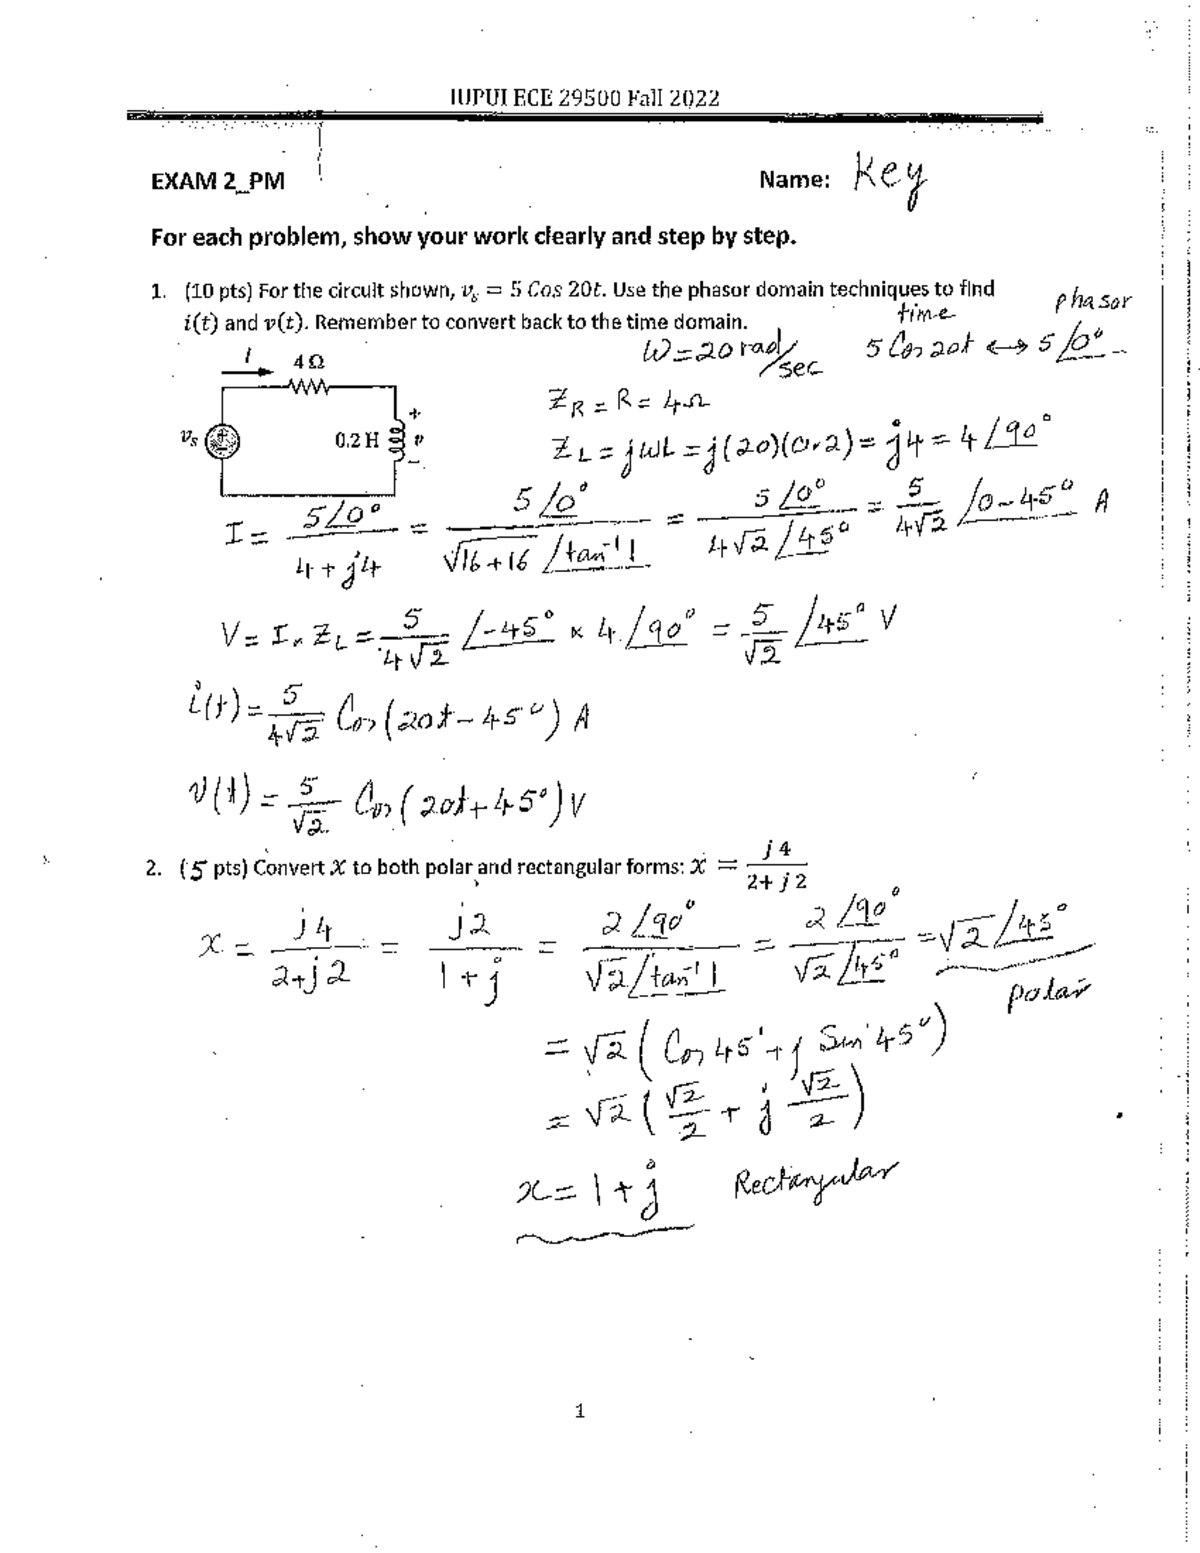 IUPUI ECE 29500 Fall 2022
EXAM 2_PM Name: Key
For each problem, show your work clearly and step by step.
1. (10 pts) For the circuit shown, v_s = 5 Cos 20t. Use the phasor domain techniques to find
i(t) and v(t). Remember to convert back to the time domain.
time phasor
W = 20 rad/sec 5 Cos 20t ↔ 5 ∠0°
I 4 Ω
v_S 0.2 H + v −
Z_R = R = 4Ω
Z_L = jWL = j(20)(0.2) = j4 = 4 ∠90°
I = 5∠0° / (4 + j4) = 5∠0° / (√(16+16) ∠tan⁻¹1) = 5∠0° / (4√2 ∠45°) = 5/(4√2) ∠0-45° A
V = I . Z_L = 5/(4√2) ∠-45° × 4 ∠90° = 5/√2 ∠45° V
i(t) = 5/(4√2) Cos(20t - 45°) A
v(t) = 5/√2 Cos(20t + 45°) V
2. (5 pts) Convert X to both polar and rectangular forms: x = j4 / (2+j2)
x = j4 / (2+j2) = j2 / (1+j) = 2∠90° / (√2 ∠tan⁻¹1) = 2∠90° / (√2 ∠45°) = √2 ∠45°
polar
= √2 (Cos 45° + j Sin 45°)
= √2 (√2/2 + j √2/2)
x = 1 + j Rectangular
1